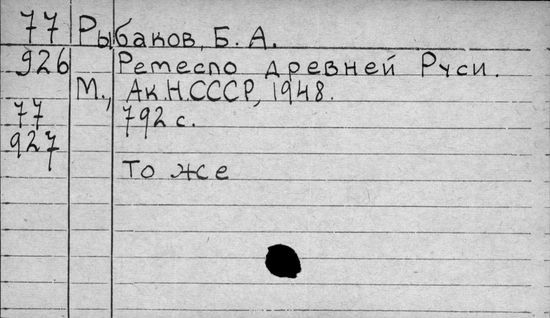 77 Рыбаков, Б. А.
926 Ремесло древней Руси.
М., Ак.Н.СССР, 1948.
77 792 с.
927
То же